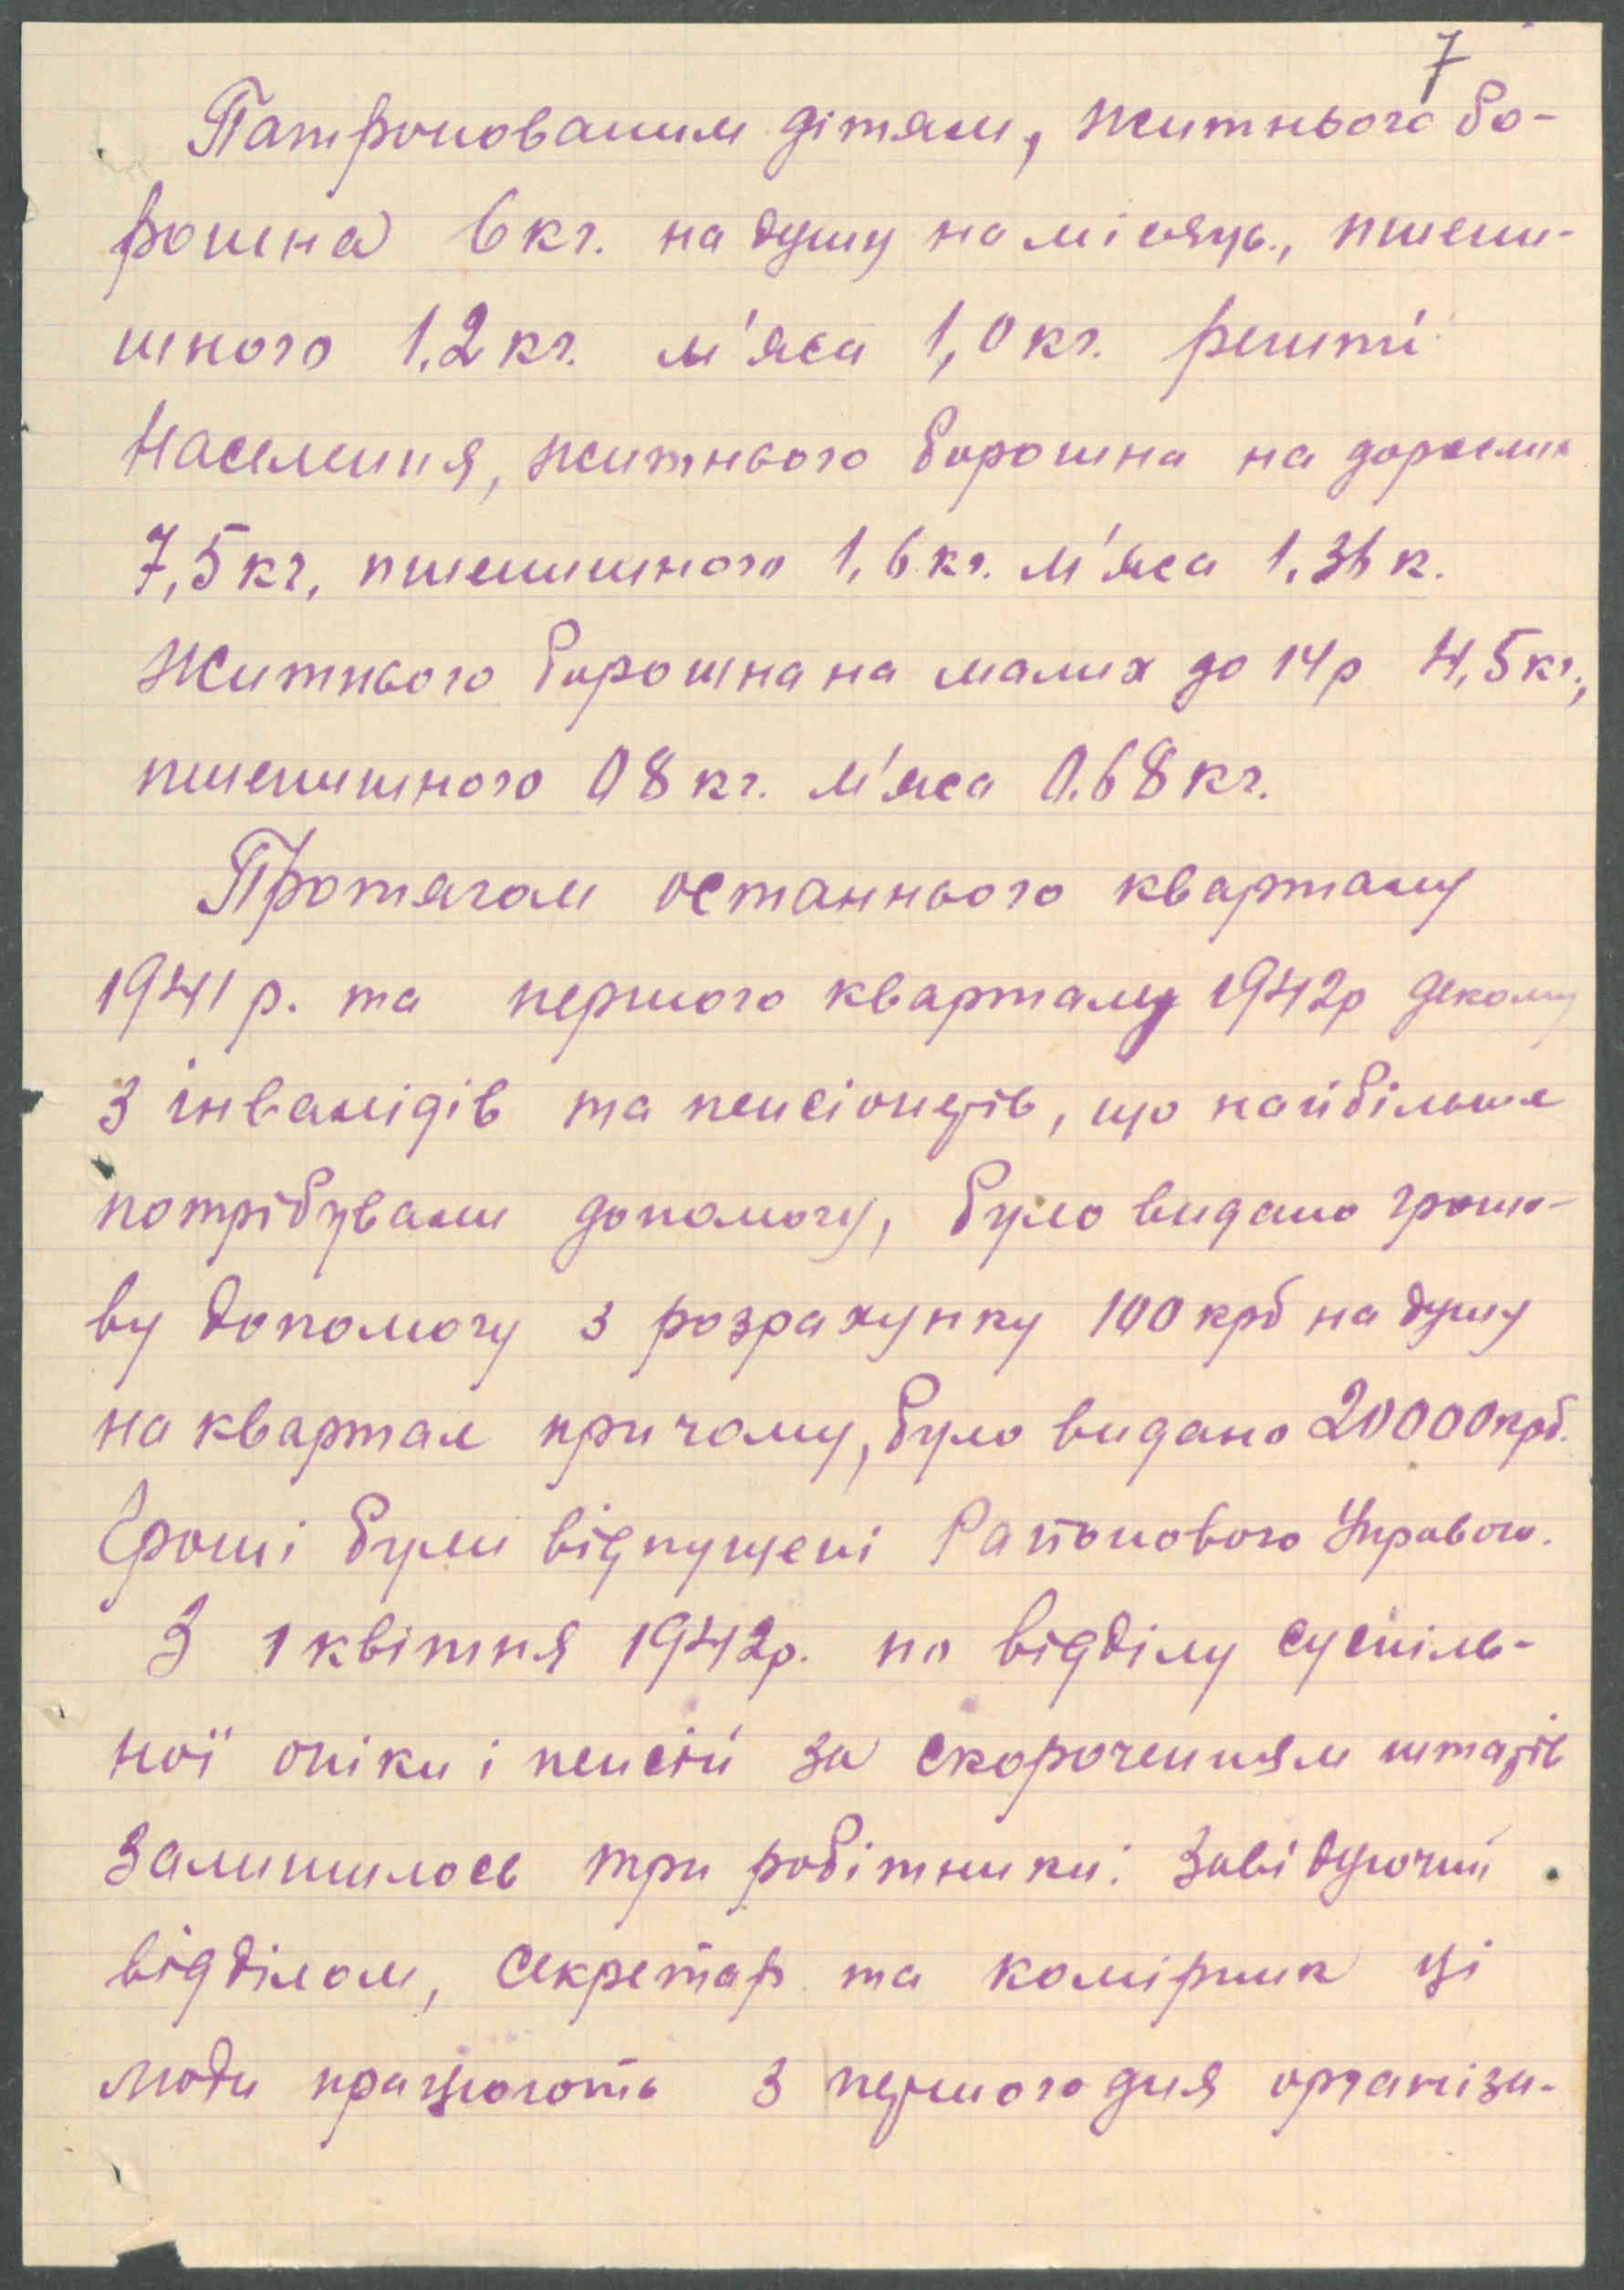 7
Патронованим дітям, житнього бо-
рошна 6 кг. на душу на місяць., пшени-
шного 1,2 кг. м'яса 1,0 кг. решті
населення, житнього борошна на дорослих
7,5 кг, пшенишного 1,6 кг. м'яса 1,36 к.
Житнього борошна на малих до 14 р 4,5 кг.,
пшенишного 08 кг. м'яса 0.68 кг.
Протягом останнього кварталу
1941 р. та першого кварталу 1942 р декому
з інвалідів та пенсіонерів, що найбільше
потрібували допомогу, було видано грошо-
ву допомогу з розрахунку 100 крб на душу
на квартал при чому, було видано 20000 крб.
Гроші були відпущені Районовою Управою.
З 1 квітня 1942 р. по відділу суспіль-
ної опіки і пенсій за скороченням штатів
залишилось три робітники: Завідуючий
відділом, секретар та комірник ці
люди працюють з першого дня організа-